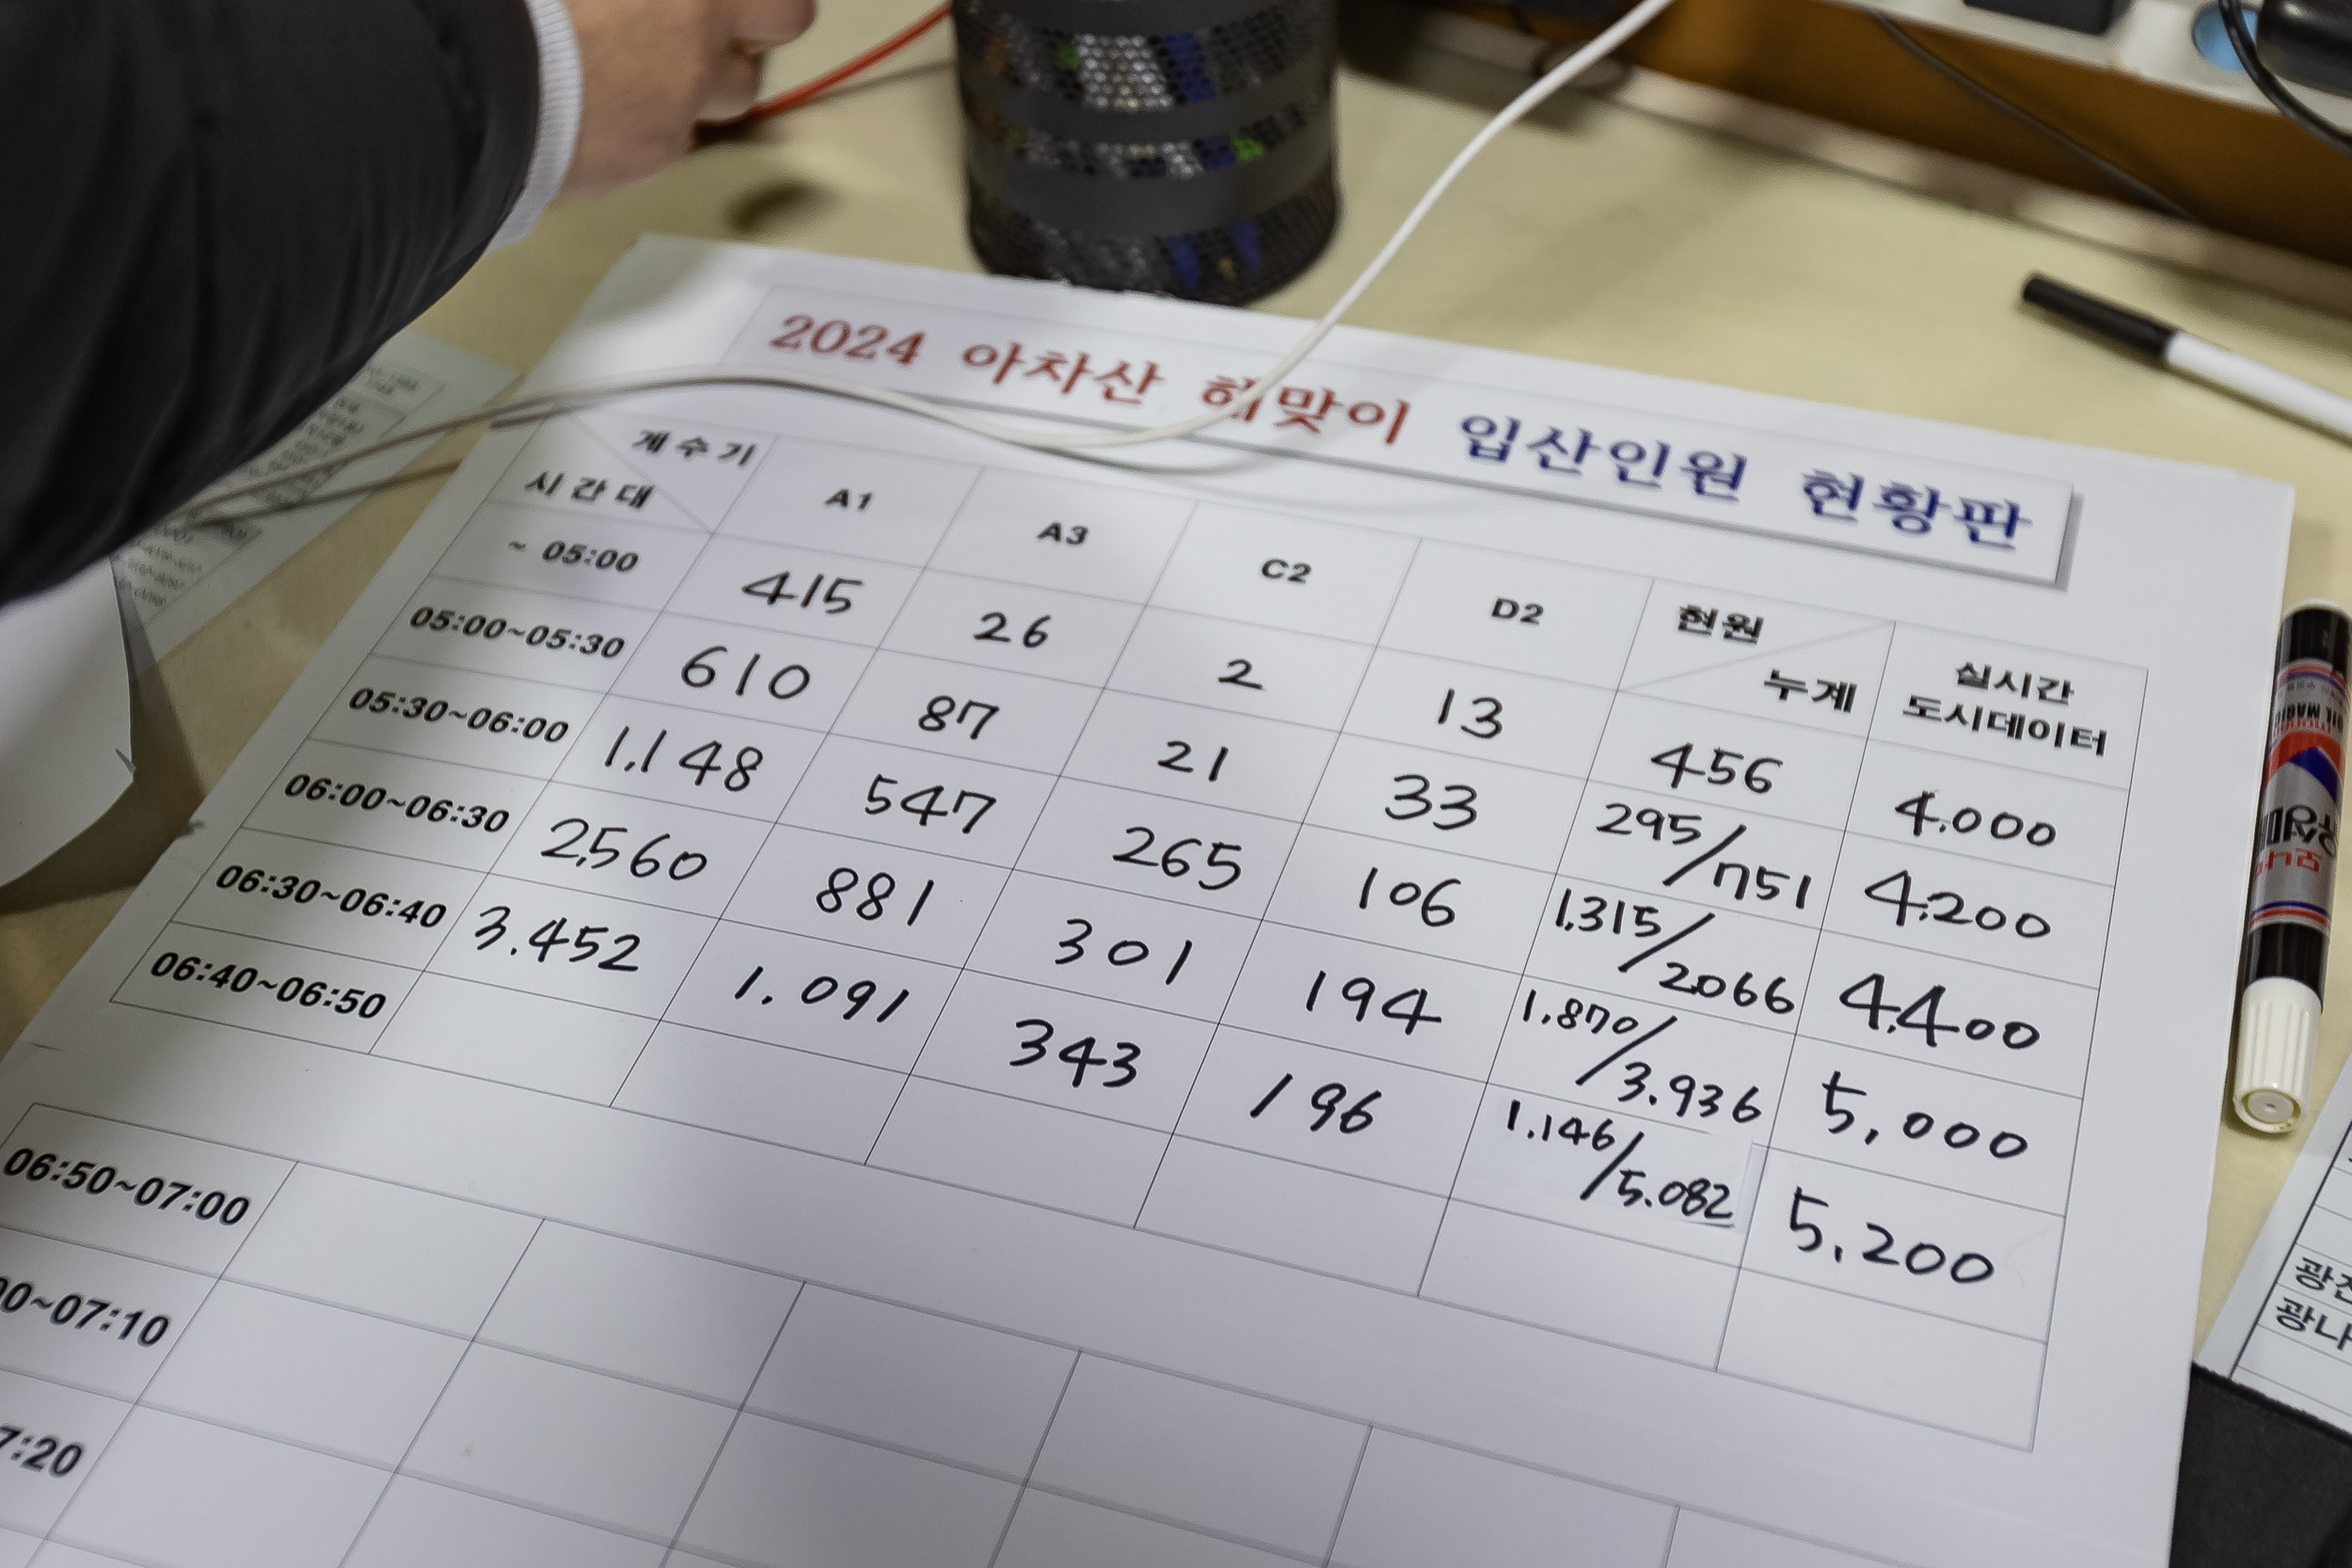 2024 아차산 해맞이 입산인원 현황판
계수기 시간대 A1 A3 C2 D2 현원 누계 실시간 도시데이터
~ 05:00 415 26 2 13 456 4.000
05:00~05:30 610 87 21 33 295/751 4.200
05:30~06:00 1,148 547 265 106 1.315/2066 4.400
06:00~06:30 2,560 881 301 194 1.870/3.936 5,000
06:30~06:40 3.452 1.091 343 196 1.146/5.082 5.200
06:40~06:50
06:50~07:00
0~07:10
7:20